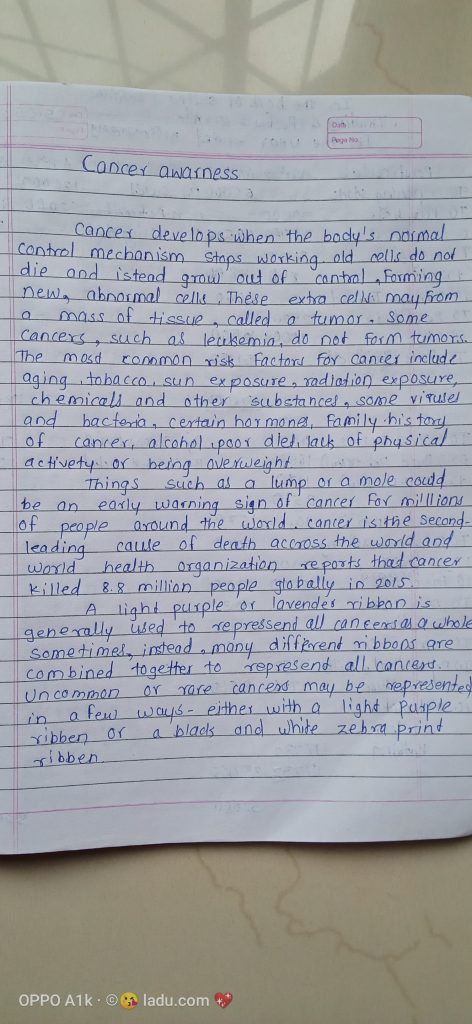 Date
Page No
Cancer awarness
Cancer develops when the body's normal
control mechanism stops working. old cells do not
die and istead grow out of control, Forming
new, abnormal cells. These extra cells may from
a mass of tissue, called a tumor. Some
cancers, such as leukemia, do not form tumors.
The most common risk Factors For cancer include
aging, tobacco, sun exposure, radiation exposure,
chemicals and other substances, some viruses
and bacteria, certain hormones, Family history
of cancer, alcohol, poor diet, lack of physical
activety or being overweight.
Things such as a lump or a mole could
be an early warning sign of cancer For milllions
of people around the world. cancer is the second-
leading cause of death accross the world and
world health organization reports thad cancer
killed 8.8 million people globally in 2015.
A light purple or lavender ribbon is
generally used to repressend all canceers as a whole
Sometimes, instead, many different ribbons are
combined togetter to represend all cancers.
Uncommon or rare cancers may be represented
in a few ways - either with a light purple
ribben or a black and white zebra print
ribben.
OPPO A1k · ©😘 ladu.com 💖